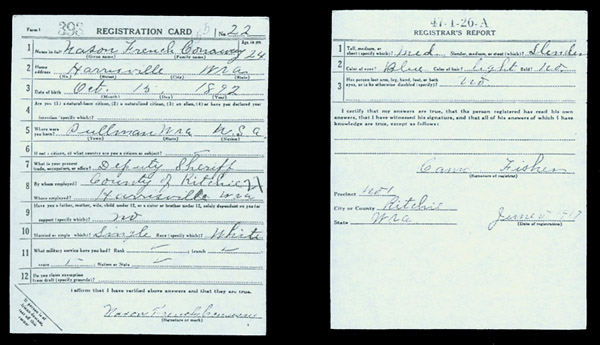 Form 1 393 REGISTRATION CARD No. 22
1 Name in full Nason French Conaway 24
(Given name) (Family name) Age, in yrs.
2 Home address Harrisville W va
(No.) (Street) (City) (State)
3 Date of birth Oct. 15 1892
(Month) (Day) (Year)
4 Are you (1) a natural-born citizen, (2) a naturalized citizen, (3) an alien, (4) or have you declared your
intention (specify which)?
5 Where were you born? Pullman W va U.S.a
(Town) (State) (Nation)
6 If not a citizen, of what country are you a citizen or subject?
7 What is your present trade, occupation, or office? Deputy Sheriff
8 By whom employed? County of Ritchie
Where employed? Harrisville W va
9 Have you a father, mother, wife, child under 12, or a sister or brother under 12, solely dependent on you for
support (specify which)? no
10 Married or single (which)? Single Race (specify which)? White
11 What military service have you had? Rank ; branch
years ; Nation or State
12 Do you claim exemption from draft (specify grounds)?
I affirm that I have verified above answers and that they are true.
Nason French Conaway
(Signature or mark)
If person is of African descent, cut off this corner
47-1-26-A
REGISTRAR'S REPORT
1 Tall, medium, or short (specify which)? med. Slender, medium, or stout (which)? Slender
2 Color of eyes? Blue Color of hair? light Bald? no
3 Has person lost arm, leg, hand, foot, or both eyes, or is he otherwise disabled (specify)? no
I certify that my answers are true, that the person registered has read his own
answers, that I have witnessed his signature, and that all of his answers of which I have
knowledge are true, except as follows:
Fisher
(Signature of registrar)
Precinct no 1
City or County Ritchie
State W va June 5 1917
(Date of registration)